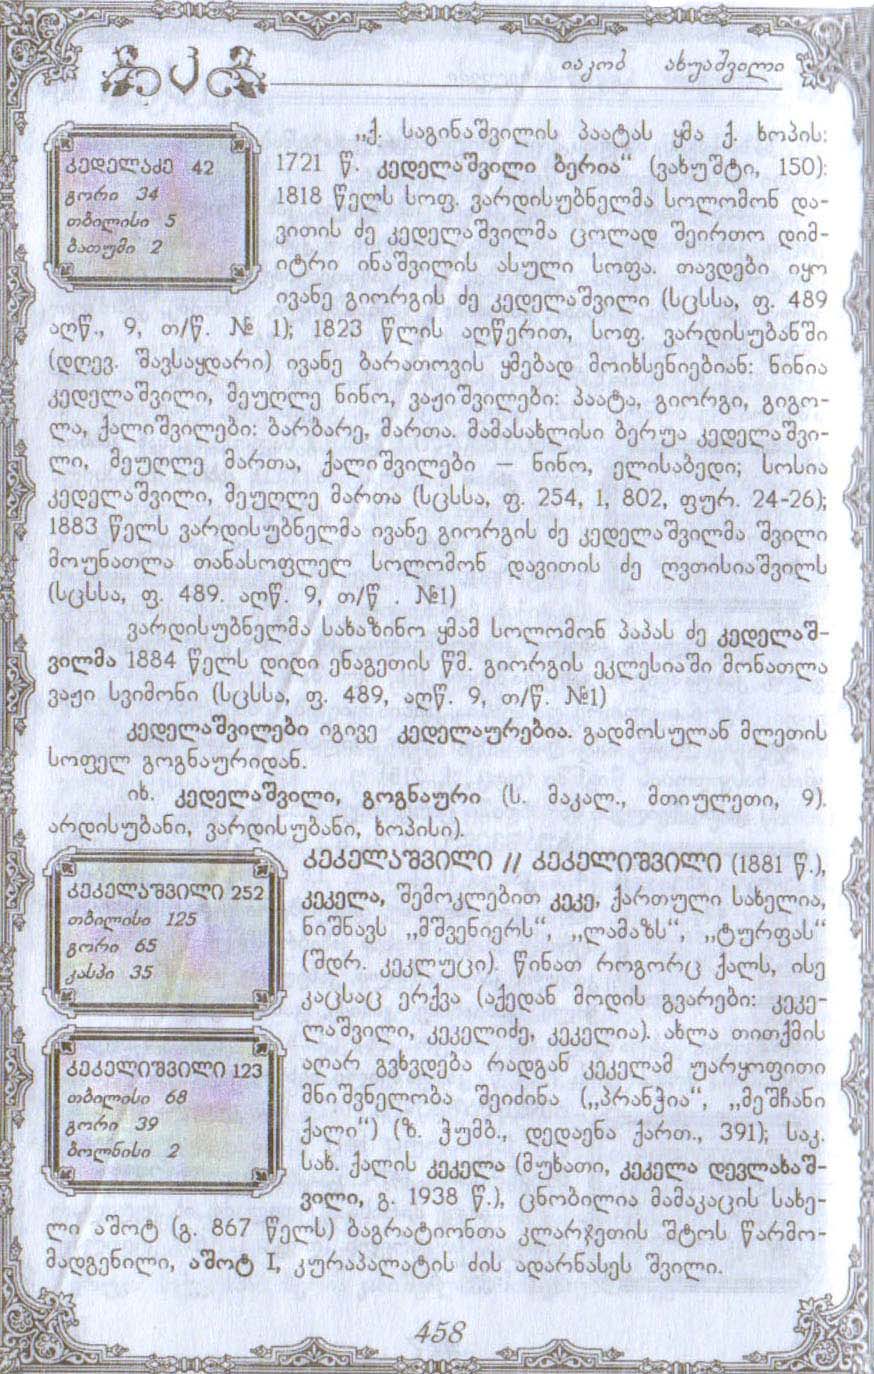 იაკობ ახუაშვილი
კედელაძე 42
გორი 34
თბილისი 5
ბათუმი 2
„ქ. საგინაშვილის პაატას ყმა ქ. ხოპის:
1721 წ. კედელაშვილი ბერია“ (ვახუშტი, 150):
1818 წელს სოფ. ვარდისუბნელმა სოლომონ და-
ვითის ძე კედელაშვილმა ცოლად შეირთო დიმ-
იტრი ინაშვილის ასული სოფა. თავდები იყო
ივანე გიორგის ძე კედელაშვილი (სცსსა, ფ. 489
აღწ., 9, თ/წ. № 1); 1823 წლის აღწერით, სოფ. ვარდისუბანში
(დღევ. შავსაყდარი) ივანე ბარათოვის ყმებად მოიხსენიებიან: ნინია
კედელაშვილი, მეუღლე ნინო, ვაჟიშვილები: პაატა, გიორგი, გიგო-
ლა, ქალიშვილები: ბარბარე, მართა. მამასახლისი ბერუა კედელაშვი-
ლი, მეუღლე მართა, ქალიშვილები – ნინო, ელისაბედი; სოსია
კედელაშვილი, მეუღლე მართა (სცსსა, ფ. 254, 1, 802, ფურ. 24-26);
1883 წელს ვარდისუბნელმა ივანე გიორგის ძე კედელაშვილმა შვილი
მოუნათლა თანასოფლელ სოლომონ დავითის ძე ღვთისიაშვილს
(სცსსა, ფ. 489. აღწ. 9, თ/წ . №1)
ვარდისუბნელმა სახაზინო ყმამ სოლომონ პაპას ძე კედელაშ-
ვილმა 1884 წელს დიდი ენაგეთის წმ. გიორგის ეკლესიაში მონათლა
ვაჟი სვიმონი (სცსსა, ფ. 489, აღწ. 9, თ/წ. №1)
კედელაშვილები იგივე კედელაურებია. გადმოსულან მლეთის
სოფელ გოგნაურიდან.
იხ. კედელაშვილი, გოგნაური (ს. მაკალ., მთიულეთი, 9).
არდისუბანი, ვარდისუბანი, ხოპისი).
კეკელაშვილი 252
თბილისი 125
გორი 65
კასპი 35
კეკელიშვილი 123
თბილისი 68
გორი 39
ბოლნისი 2
კეკელაშვილი // კეკელიშვილი (1881 წ.),
კეკელა, შემოკლებით კეკე, ქართული სახელია,
ნიშნავს „მშვენიერს“, „ლამაზს“, „ტურფას“
(შდრ. კეკლუცი). წინათ როგორც ქალს, ისე
კაცსაც ერქვა (აქედან მოდის გვარები: კეკე-
ლაშვილი, კეკელიძე, კეკელია). ახლა თითქმის
აღარ გვხვდება რადგან კეკელამ უარყოფითი
მნიშვნელობა შეიძინა („პრანჭია“, „მეშჩანი
ქალი“) (ზ. ჭუმბ., დედაენა ქართ., 391); საკ.
სახ. ქალის კეკელა (მუხათი, კეკელა დევლახაშ-
ვილი, გ. 1938 წ.), ცნობილია მამაკაცის სახე-
ლი აშოტ (გ. 867 წელს) ბაგრატიონთა კლარჯეთის შტოს წარმო-
მადგენილი, აშოტ I, კურაპალატის ძის ადარნასეს შვილი.
458